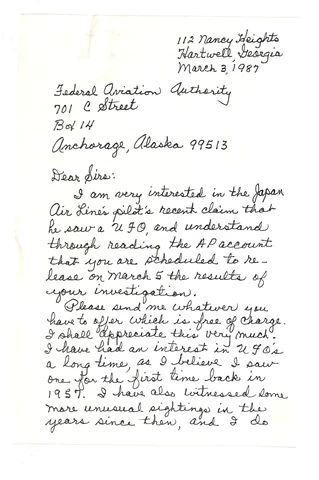 112 Nancy Heights
Hartwell, Georgia
March 3, 1987
Federal Aviation Authority
701 C Street
Box 14
Anchorage, Alaska 99513
Dear Sirs:
I am very interested in the Japan
Air Line's pilot's recent claim that
he saw a UFO, and understand
through reading the AP account
that you are scheduled to re-
lease on March 5 the results of
your investigation.
Please send me whatever you
have to offer which is free of charge.
I shall appreciate this very much.
I have had an interest in UFO's
a long time, as I believe I saw
one for the first time back in
1957. I have also witnessed some
more unusual sightings in the
years since then, and I do